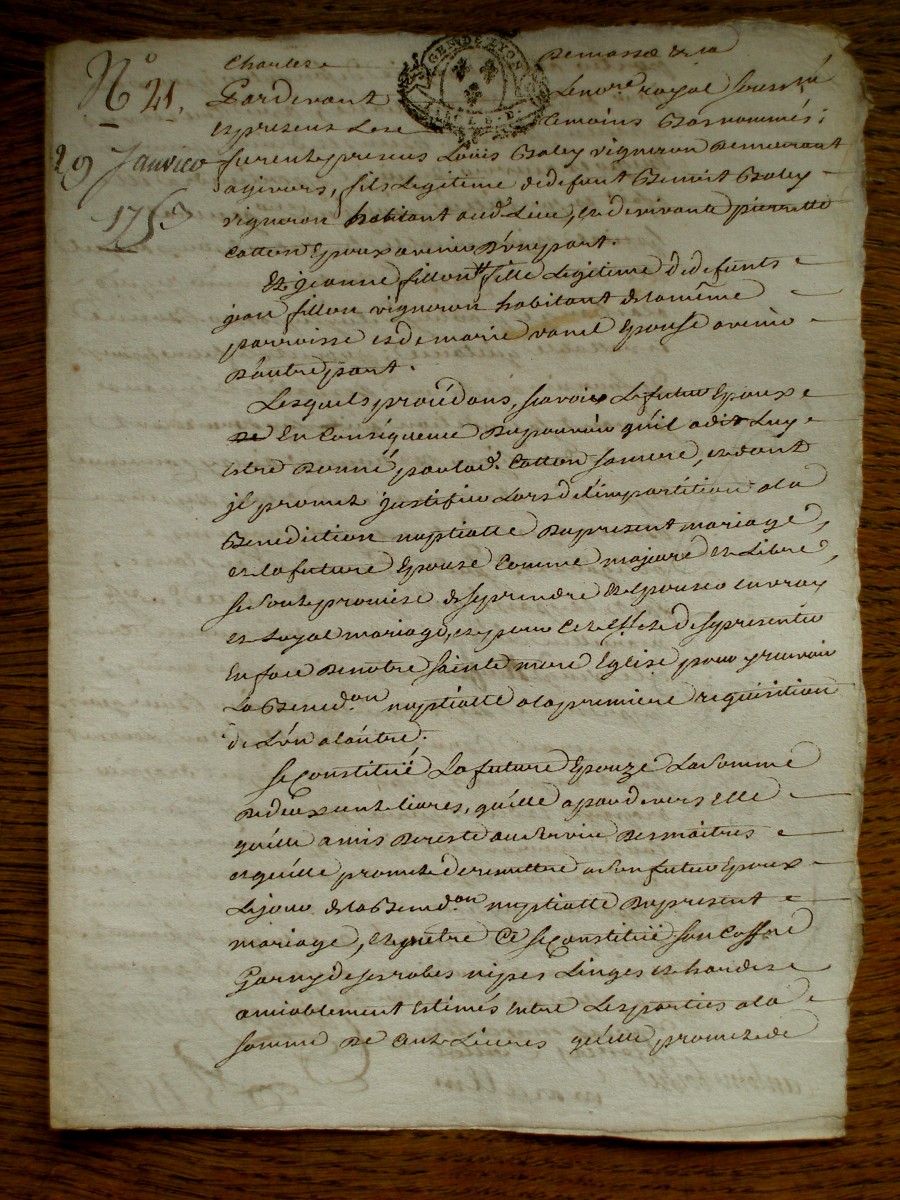 N° 21.
29 Janvier
1753
GEN. DE LYON
Pardevant Le nore royal soussné
et presens Les temoins Bas nommés ;
furent presens Loüis Baley vigneron Demeurant
a givors, fils Legitime de defunt Benoit Baley
vigneron habitant aud. Lieu, et de vivante pierrette
Cotton Epoux avenir D'une part.
Et jeanne fillon fille Legitime de defunts
jean fillon vigneron habitant de la même
parroisse et de marie vanel Epouse avenir
D'autre part.
Lesquels procédans, sçavoir Le futur Epoux
En Conséquence Du pouvoir qu'il a dit Luy
Estre Donné par lad. Cotton sa mere, et dont
jl promet justifier Lors de L'impartition a la
Benediction nuptialle Du present mariage,
et la future Epouse Comme majeure et Libre,
se sont promis de se prendre et Epouser en vray
et Loyal mariage, et pour Cet effet de se presenter
En face De notre sainte mere Eglise pour y recevoir
La Bened.on nuptialle a la premiere requisition
de L'un a L'autre.
se Constitüe La future Epouze La somme
De deux cent livres, qu'elle a par devers elle
qu'elle a mis De reste au service Des maîtres
et qu'elle promet De remettre a son futur Epoux
Le jour de la Bened.on nuptialle Du present
mariage, et outre Ce se Constitüe son Coffre
Garny de ses robes nipes Linges et hardes
amiablement Estimés entre Les parties a la
somme De Cent Livres qu'elle promet de